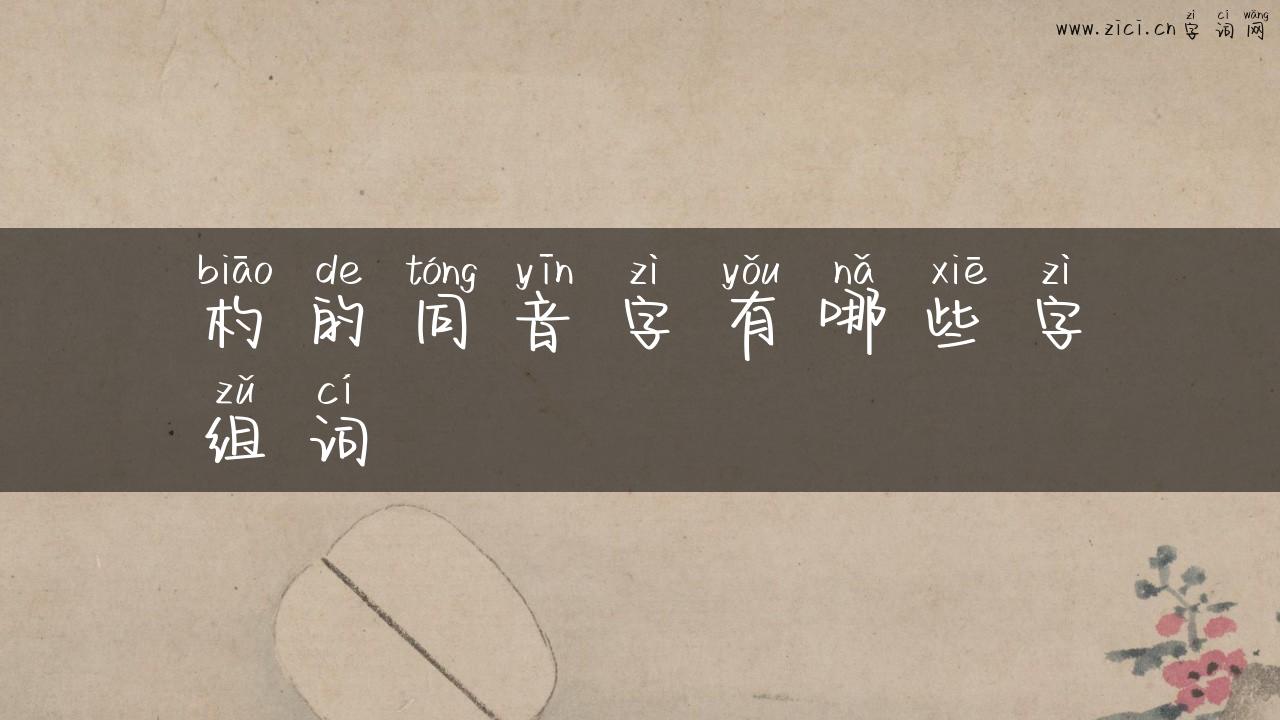 zì cí wǎng
www.zici.cn字词网
biāo de tóng yīn zì yǒu nǎ xiē zì
杓的同音字有哪些字
zǔ cí
组词